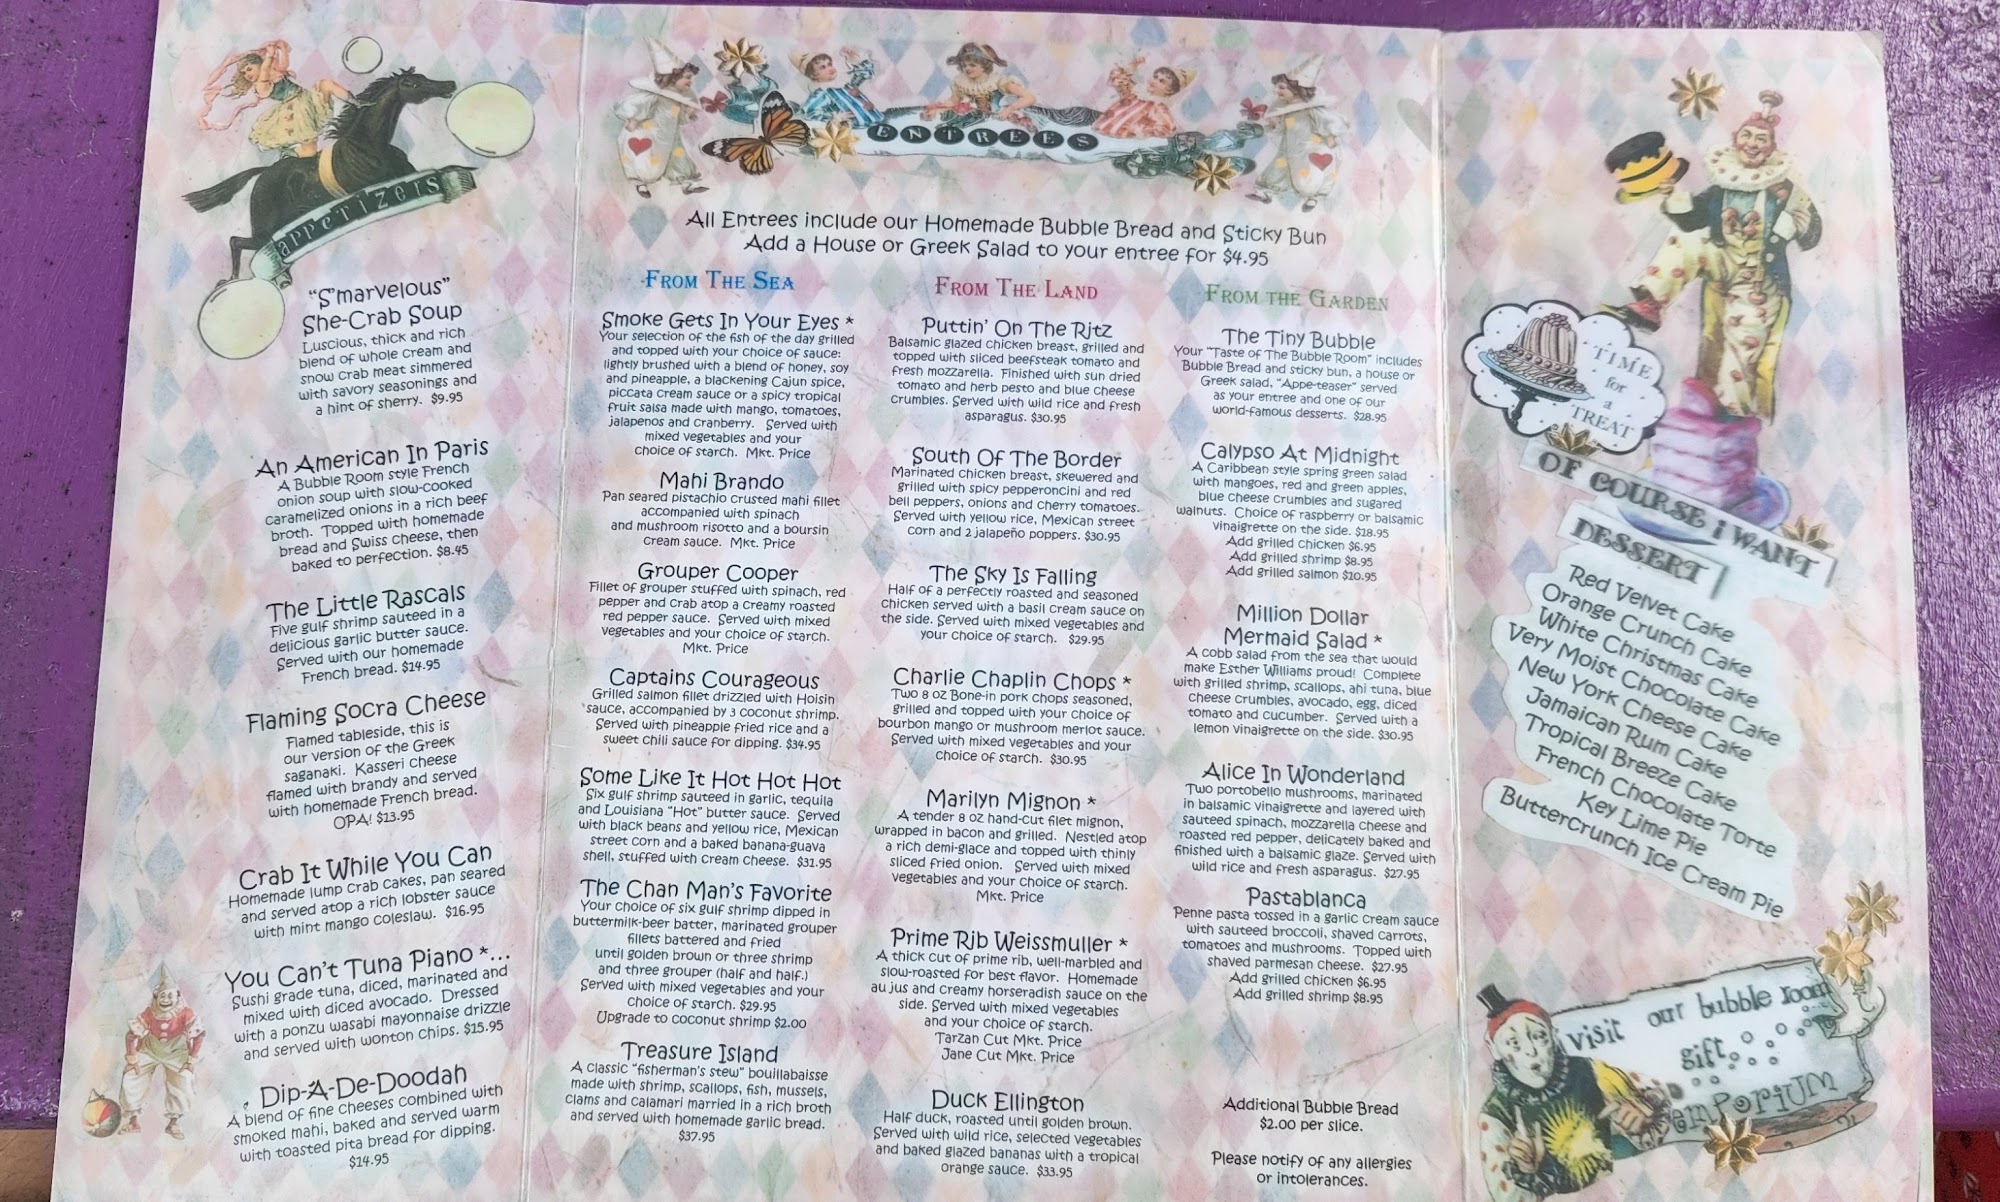 appetizers
"S'marvelous"
She-Crab Soup
Luscious, thick and rich
blend of whole cream and
snow crab meat simmered
with savory seasonings and
a hint of sherry. $9.95
An American In Paris
A Bubble Room style French
onion soup with slow-cooked
caramelized onions in a rich beef
broth. Topped with homemade
bread and Swiss cheese, then
baked to perfection. $8.45
The Little Rascals
Five gulf shrimp sauteed in a
delicious garlic butter sauce.
Served with our homemade
French bread. $14.95
Flaming Socra Cheese
Flamed tableside, this is
our version of the Greek
saganaki. Kasseri cheese
flamed with brandy and served
with homemade French bread.
OPA! $13.95
Crab It While You Can
Homemade lump crab cakes, pan seared
and served atop a rich lobster sauce
with mint mango coleslaw. $16.95
You Can't Tuna Piano *...
Sushi grade tuna, diced, marinated and
mixed with diced avocado. Dressed
with a ponzu wasabi mayonnaise drizzle
and served with wonton chips. $15.95
Dip-A-De-Doodah
A blend of fine cheeses combined with
smoked mahi, baked and served warm
with toasted pita bread for dipping.
$14.95
ENTREES
All Entrees include our Homemade Bubble Bread and Sticky Bun
Add a House or Greek Salad to your entree for $4.95
From The Sea
Smoke Gets In Your Eyes *
Your selection of the fish of the day grilled
and topped with your choice of sauce:
lightly brushed with a blend of honey, soy
and pineapple, a blackening Cajun spice,
piccata cream sauce or a spicy tropical
fruit salsa made with mango, tomatoes,
jalapenos and cranberry. Served with
mixed vegetables and your
choice of starch. Mkt. Price
Mahi Brando
Pan seared pistachio crusted mahi fillet
accompanied with spinach
and mushroom risotto and a boursin
cream sauce. Mkt. Price
Grouper Cooper
Fillet of grouper stuffed with spinach, red
pepper and crab atop a creamy roasted
red pepper sauce. Served with mixed
vegetables and your choice of starch.
Mkt. Price
Captains Courageous
Grilled salmon fillet drizzled with Hoisin
sauce, accompanied by 3 coconut shrimp.
Served with pineapple fried rice and a
sweet chili sauce for dipping. $34.95
Some Like It Hot Hot Hot
Six gulf shrimp sauteed in garlic, tequila
and Louisiana "Hot" butter sauce. Served
with black beans and yellow rice, Mexican
street corn and a baked banana-guava
shell, stuffed with cream cheese. $31.95
The Chan Man's Favorite
Your choice of six gulf shrimp dipped in
buttermilk-beer batter, marinated grouper
fillets battered and fried
until golden brown or three shrimp
and three grouper (half and half.)
Served with mixed vegetables and your
choice of starch. $29.95
Upgrade to coconut shrimp $2.00
Treasure Island
A classic "fisherman's stew" bouillabaisse
made with shrimp, scallops, fish, mussels,
clams and calamari married in a rich broth
and served with homemade garlic bread.
$37.95
From The Land
Puttin' On The Ritz
Balsamic glazed chicken breast, grilled and
topped with sliced beefsteak tomato and
fresh mozzarella. Finished with sun dried
tomato and herb pesto and blue cheese
crumbles. Served with wild rice and fresh
asparagus. $30.95
South Of The Border
Marinated chicken breast, skewered and
grilled with spicy pepperoncini and red
bell peppers, onions and cherry tomatoes.
Served with yellow rice, Mexican street
corn and 2 jalapeño poppers. $30.95
The Sky Is Falling
Half of a perfectly roasted and seasoned
chicken served with a basil cream sauce on
the side. Served with mixed vegetables and
your choice of starch. $29.95
Charlie Chaplin Chops *
Two 8 oz Bone-in pork chops seasoned,
grilled and topped with your choice of
bourbon mango or mushroom merlot sauce.
Served with mixed vegetables and your
choice of starch. $30.95
Marilyn Mignon *
A tender 8 oz hand-cut filet mignon,
wrapped in bacon and grilled. Nestled atop
a rich demi-glace and topped with thinly
sliced fried onion. Served with mixed
vegetables and your choice of starch.
Mkt. Price
Prime Rib Weissmuller *
A thick cut of prime rib, well-marbled and
slow-roasted for best flavor. Homemade
au jus and creamy horseradish sauce on the
side. Served with mixed vegetables
and your choice of starch.
Tarzan Cut Mkt. Price
Jane Cut Mkt. Price
Duck Ellington
Half duck, roasted until golden brown.
Served with wild rice, selected vegetables
and baked glazed bananas with a tropical
orange sauce. $33.95
From the Garden
The Tiny Bubble
Your "Taste of The Bubble Room" includes
Bubble Bread and sticky bun, a house or
Greek salad, "Appe-teaser" served
as your entree and one of our
world-famous desserts. $28.95
Calypso At Midnight
A Caribbean style spring green salad
with mangoes, red and green apples,
blue cheese crumbles and sugared
walnuts. Choice of raspberry or balsamic
vinaigrette on the side. $18.95
Add grilled chicken $6.95
Add grilled shrimp $8.95
Add grilled salmon $10.95
Million Dollar
Mermaid Salad *
A cobb salad from the sea that would
make Esther Williams proud! Complete
with grilled shrimp, scallops, ahi tuna, blue
cheese crumbles, avocado, egg, diced
tomato and cucumber. Served with a
lemon vinaigrette on the side. $30.95
Alice In Wonderland
Two portobello mushrooms, marinated
in balsamic vinaigrette and layered with
sauteed spinach, mozzarella cheese and
roasted red pepper, delicately baked and
finished with a balsamic glaze. Served with
wild rice and fresh asparagus. $27.95
Pastablanca
Penne pasta tossed in a garlic cream sauce
with sauteed broccoli, shaved carrots,
tomatoes and mushrooms. Topped with
shaved parmesan cheese. $27.95
Add grilled chicken $6.95
Add grilled shrimp $8.95
Additional Bubble Bread
$2.00 per slice.
Please notify of any allergies
or intolerances.
TIME
for
a
TREAT
OF COURSE i WANT
DESSERT
Red Velvet Cake
Orange Crunch Cake
White Christmas Cake
Very Moist Chocolate Cake
New York Cheese Cake
Jamaican Rum Cake
Tropical Breeze Cake
French Chocolate Torte
Key Lime Pie
Buttercrunch Ice Cream Pie
visit our bubble room
gift
emporium